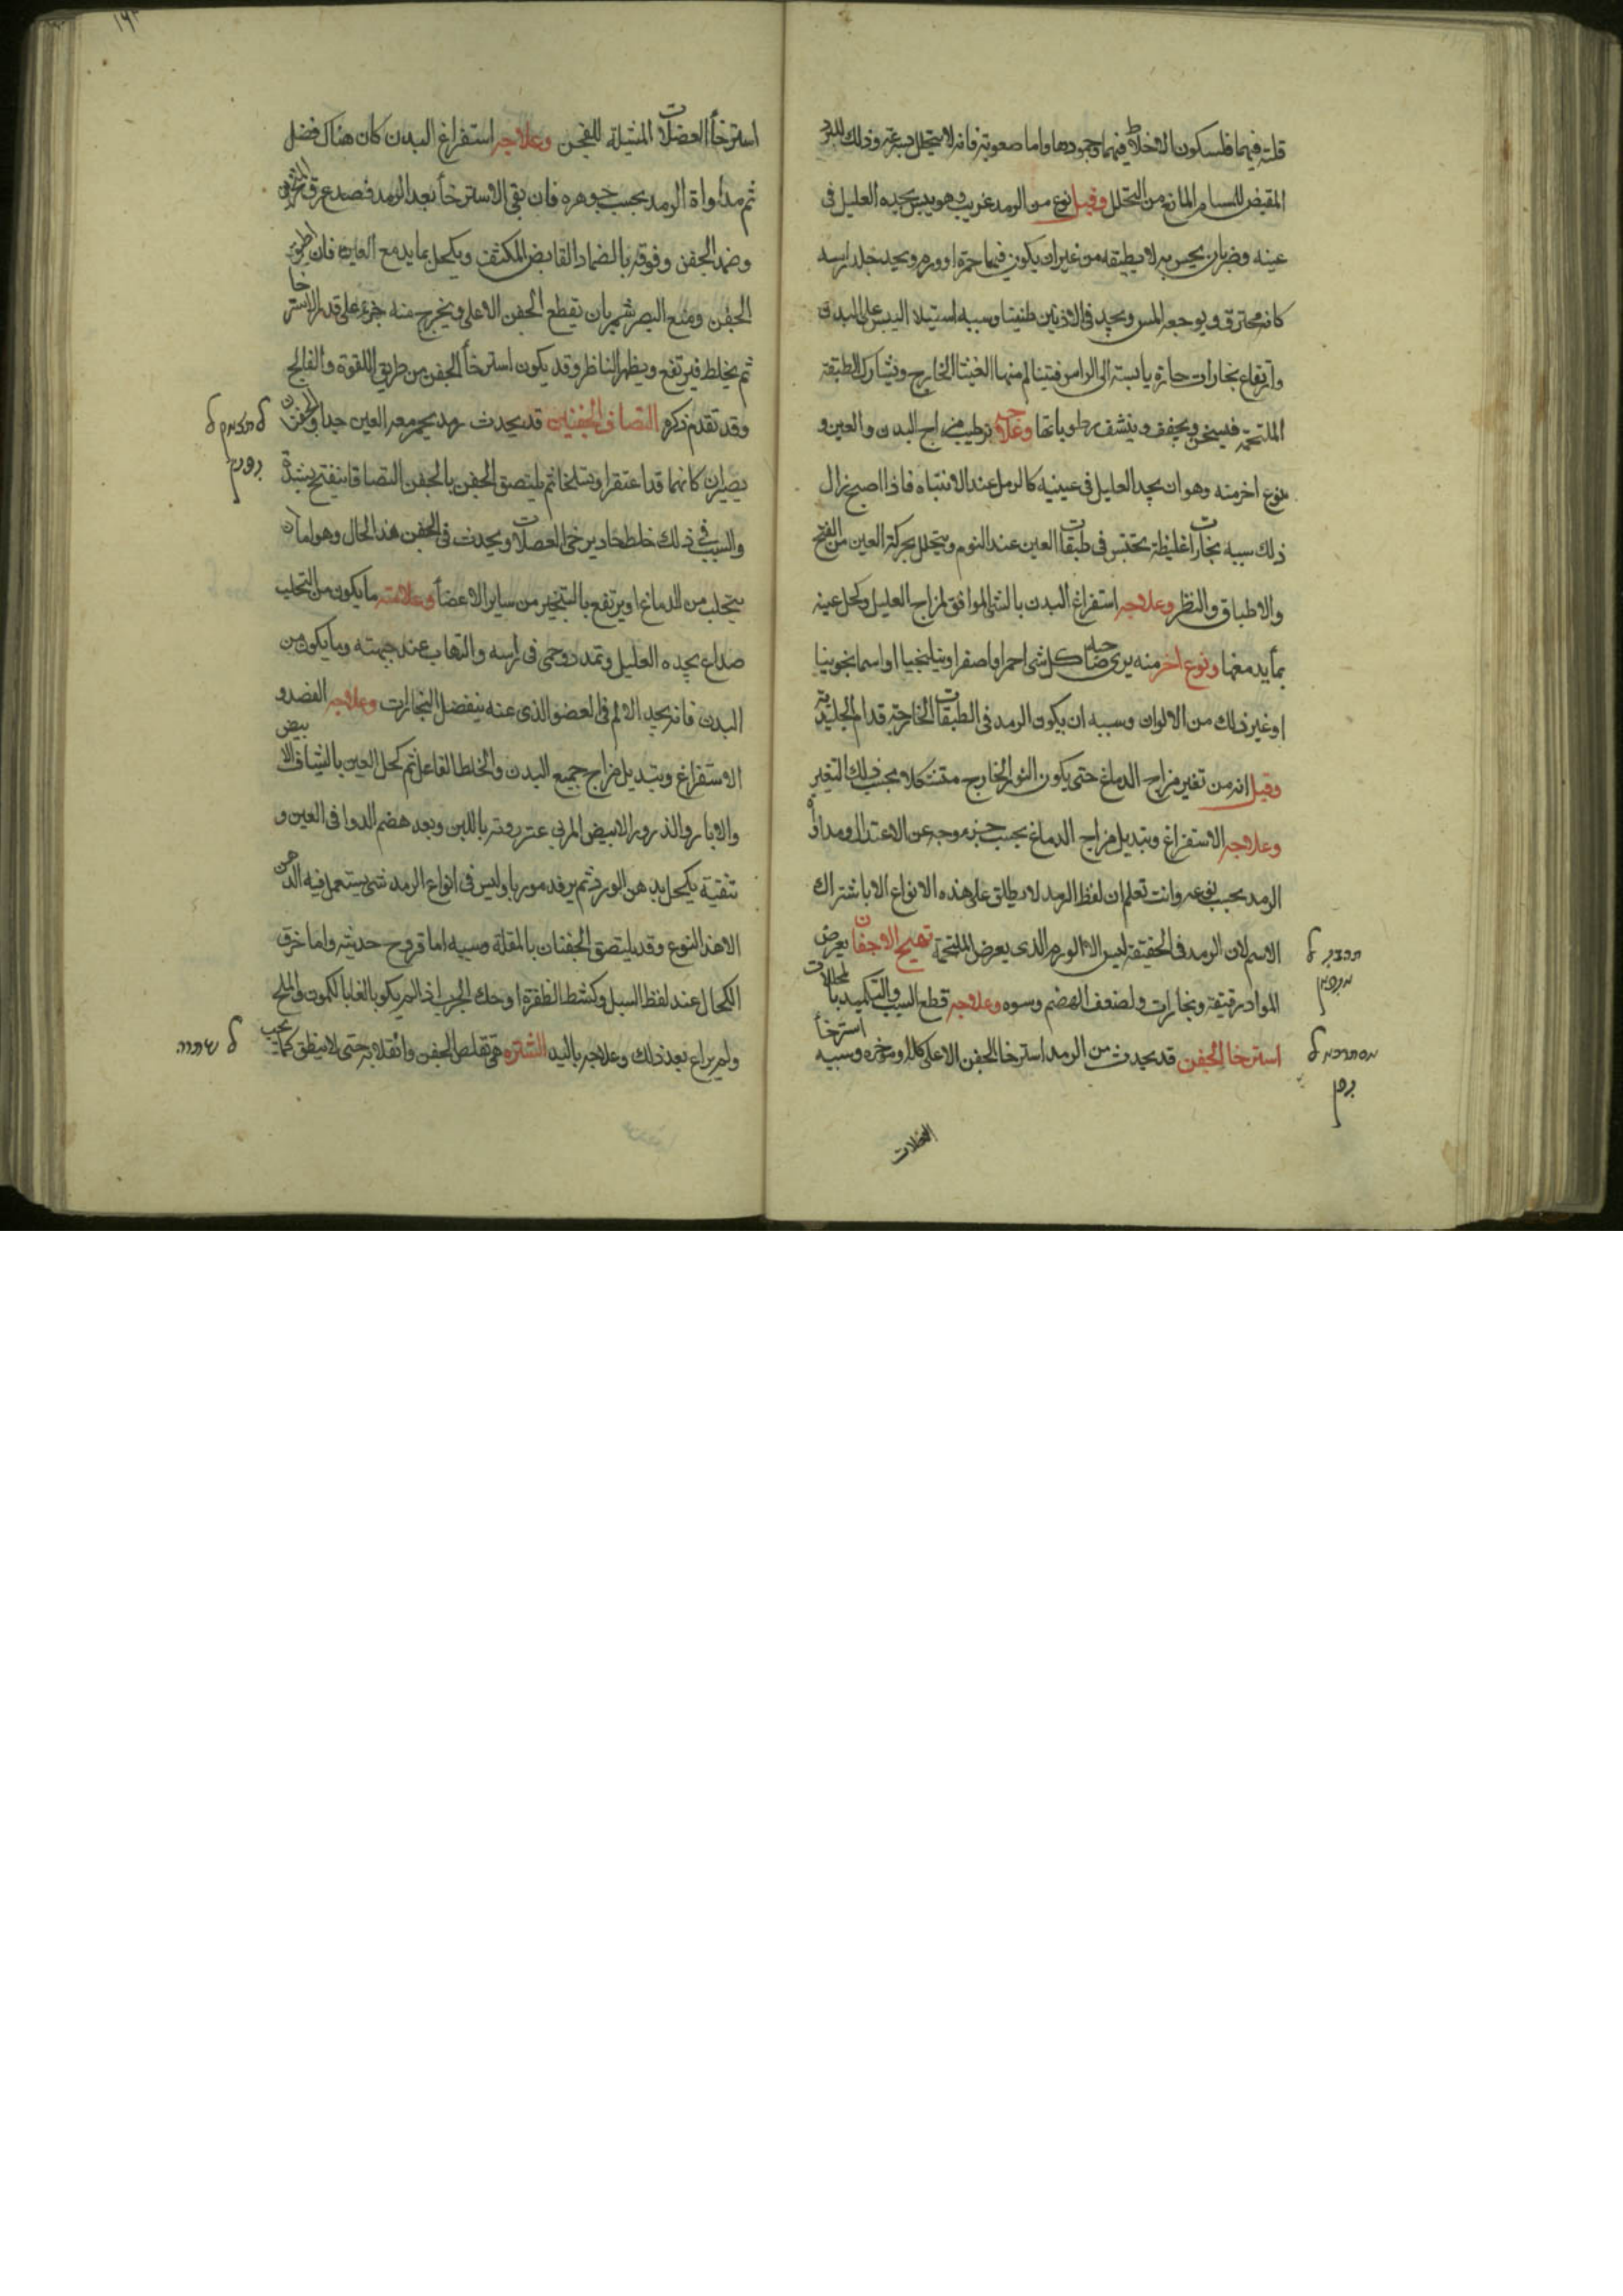 قلته فيهما فلسكون الاخلاط فيهما وجمودها واما صعوبته فانه لا يتحلل بسرعة وذلك للبرد
المقبض للمسام المانع من التحلل وقيل نوع من الرمد غريب وهو يبس يجده العليل في
عينه وضربان يحس به لا يطيقه من غير ان يكون فيها حمرة او ورم ويجد جلد راسه
كانه محترق ويوجعه المس ويجد في الاذنين طنينا وسببه استيلا اليبس على البدن
وارتفاع بخارات حارة يابسة الى الراس فتينالم منها الغشا الخارج ويشارك الطبقة
الملتحمة فيسخن ويجفف وينشف رطوباتها وعلاجه ترطيب مزاج البدن والعين و
نوع اخر منه وهو ان يجد العليل في عينيه كالرمل عند الانتباه فاذا اصبح زال
ذلك سببه بخارات غليظة تحتبس في طبقات العين عند النوم ويتحلل بحركة العين من الفتح
والاطباق والنظر وعلاجه استفراغ البدن بالشي الموافق لمزاج العليل وكحل عينه
بما يدمعها ونوع اخر منه يرى صاحبه كل شي احمر او اصفر او بنفسجيا او اسمانجونيا
او غير ذلك من الالوان وسببه ان يكون الرمد في الطبقات الخارجة قدام الجليدية
وقيل انه من تغير مزاج الدماغ حتى يكون النور الخارج متشكلا بحسب ذلك التغير
وعلاجه الاستفراغ وتبديل مزاج الدماغ بحسب خروجه عن الاعتدال ومداواة
الرمد بحسب نوعه وانت تعلم ان لفظ الرمد لا يطلق على هذه الانواع الا باشتراك
الاسم لان الرمد في الحقيقة ليس الا الورم الذي يعرض للملتحمة تهيج الاجفان يعرض
لمواد رقيقة وبخارات ولضعف الهضم وسوه وعلاجه قطع السبب والتكميد بالمحللات
استرخا الجفن قد يحدث من الرمد استرخا الجفن الاعلى كله او موخره وسببه استرخا
العضلات
תהייג ל
אגפאן
אסתרכא ל
גפן
استرخا العضلات المشيلة للجفن وعلاجه استفراغ البدن كان هناك فضل
ثم مداواة الرمد بحسب جوهره فان بقي الاسترخا بعد الرمد فصد عرق
وضمد الجفن وفوقه بالضماد القابض المكثف ويكحل بما يدمع العين فان اطبق
الجفن ومنع البصر شمر بان تقطع الجفن الاعلى ويخرج منه جزء على قدر الاسترخا
ثم يخاط فيرتفع ويظهر الناظر وقد يكون استرخا الجفن من طريق اللقوة والفالج
وقد تقدم ذكره التصاق الجفنين قد يحدث رمد يحمر معه العين جدا والجفنان
يصيران كانهما قد اعتقرا وتسلخا ثم يلتصق الجفن بالجفن التصاقا ينفتح بشدة
والسبب في ذلك خلط حاد يرخي العضلات ويحدث في الجفن هذا الحال وهو اما ان
يتحلب من الدماغ او يرتفع بالتبخير من ساير الاعضا وعلامته ما يكون من التحلب
صداع يجده العليل وتمدد وحمى في راسه والتهاب عند جبهته وما يكون من
البدن فانه يجد الالم في العضو الذي عنه ينفصل البخارات وعلاجه الفصد و
الاستفراغ وتبديل مزاج جميع البدن والخلط الفاعل ثم كحل العين بالشياف الابيض
والابار والذرور الابيض المربى عتروته باللبن وبعد هضم الدوا في العين و
تنقية يكحل بدهن الورد ثم يرفد مورما وليس في انواع الرمد شي يستعمل فيه الدهن
الا هذا النوع وقد يلتصق الجفنان بالمقلة وسببه اما قروح حديثة واما خرق
الكحال عند لفظ السبل وكشط الظفرة او حك الجرب اذا لم يكو بالغا بالكمون والملح
ولم يراع بعد ذلك وعلاجه باليد الشترة هي تقلص الجفن وانقلابه حتى لا ينطبق كما يجب
ל תצאק ל
גפנין
ל שתרה